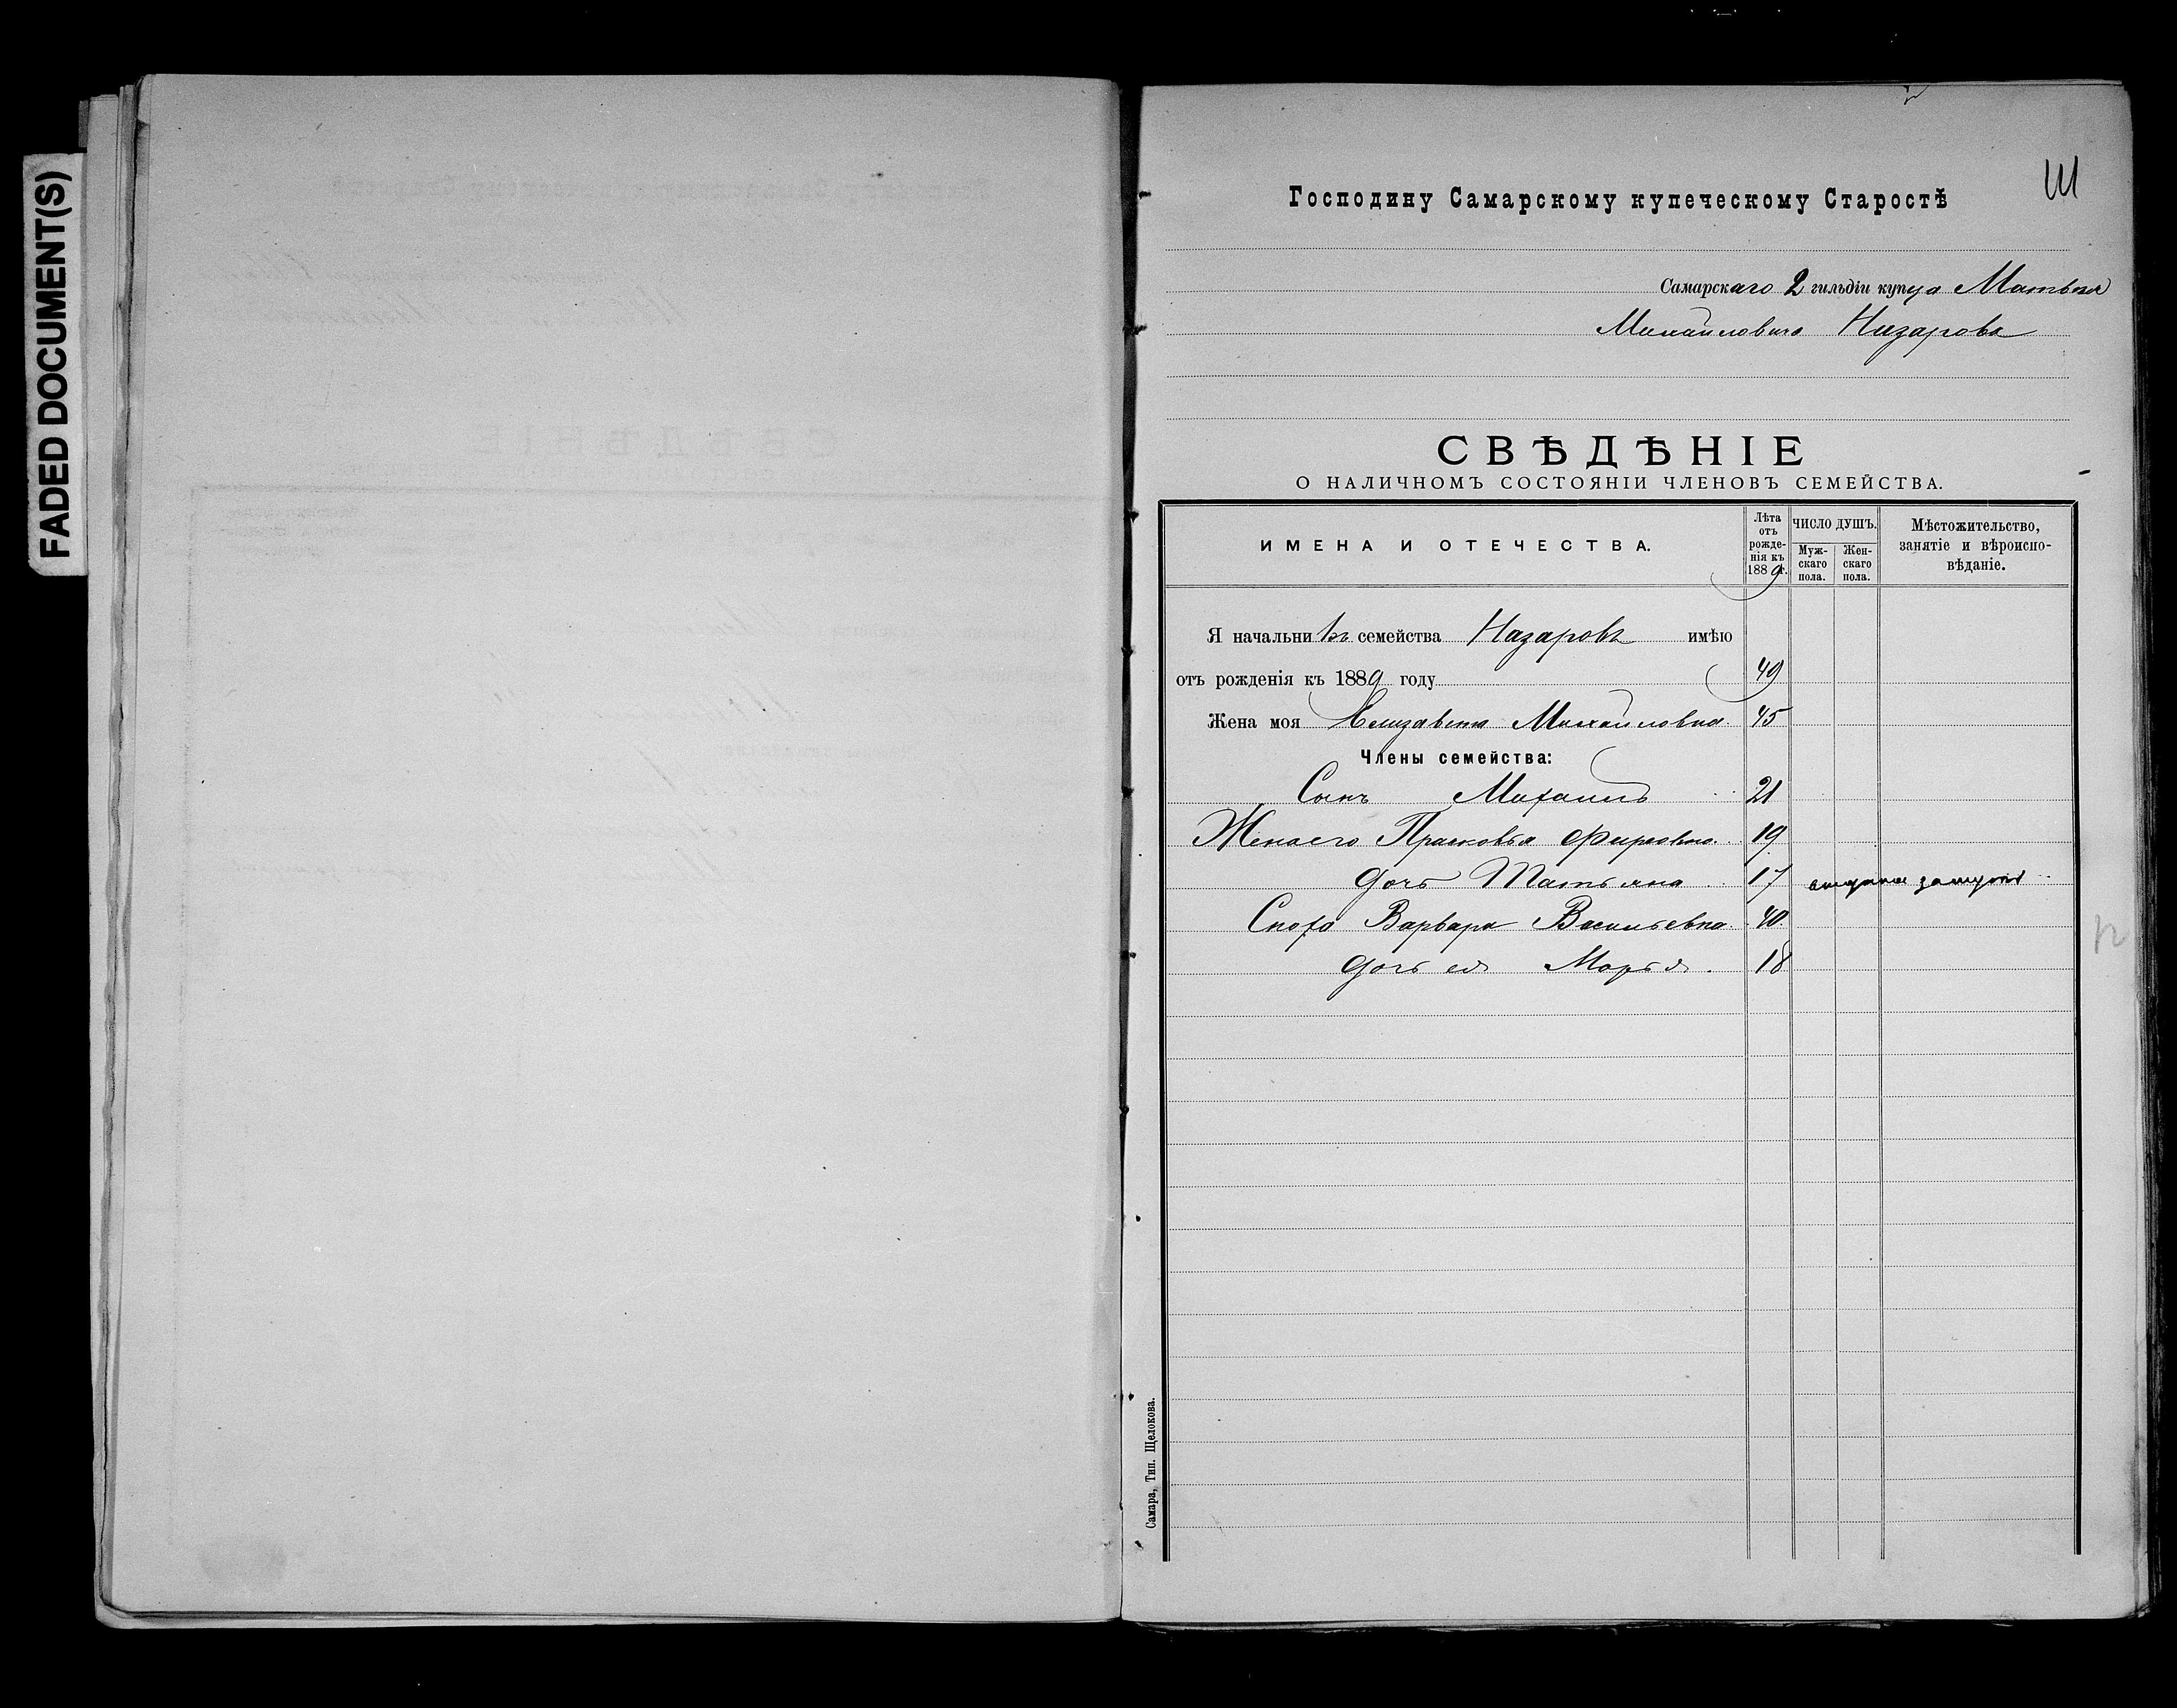 FADED DOCUMENT(S)
Ш
Господину Самарскому купеческому Старостѣ
Самарскаго 2 гильдіи купца Матвея
Михайловича Назарова
СВѢДѢНІЕ
О НАЛИЧНОМЪ СОСТОЯНІИ ЧЛЕНОВЪ СЕМЕЙСТВА.
ИМЕНА И ОТЕЧЕСТВА.
Лѣта отъ рожденія къ 1889 г.
ЧИСЛО ДУШЪ.
Мужскаго пола.
Женскаго пола.
Мѣстожительство, занятіе и вѣроисповѣданіе.
Я начальникъ семейства Назаровъ имѣю
отъ рожденія къ 1889 году 49
Жена моя Елизавета Михайловна 45
Члены семейства:
Сынъ Михаилъ 21
Жена его Прасковья Фирсовна 19
Дочь Татьяна 17 выдана замужъ
Сноха Варвара Васильевна 40
Дочь ея Марья 18
Самара, Тип. Щелокова.